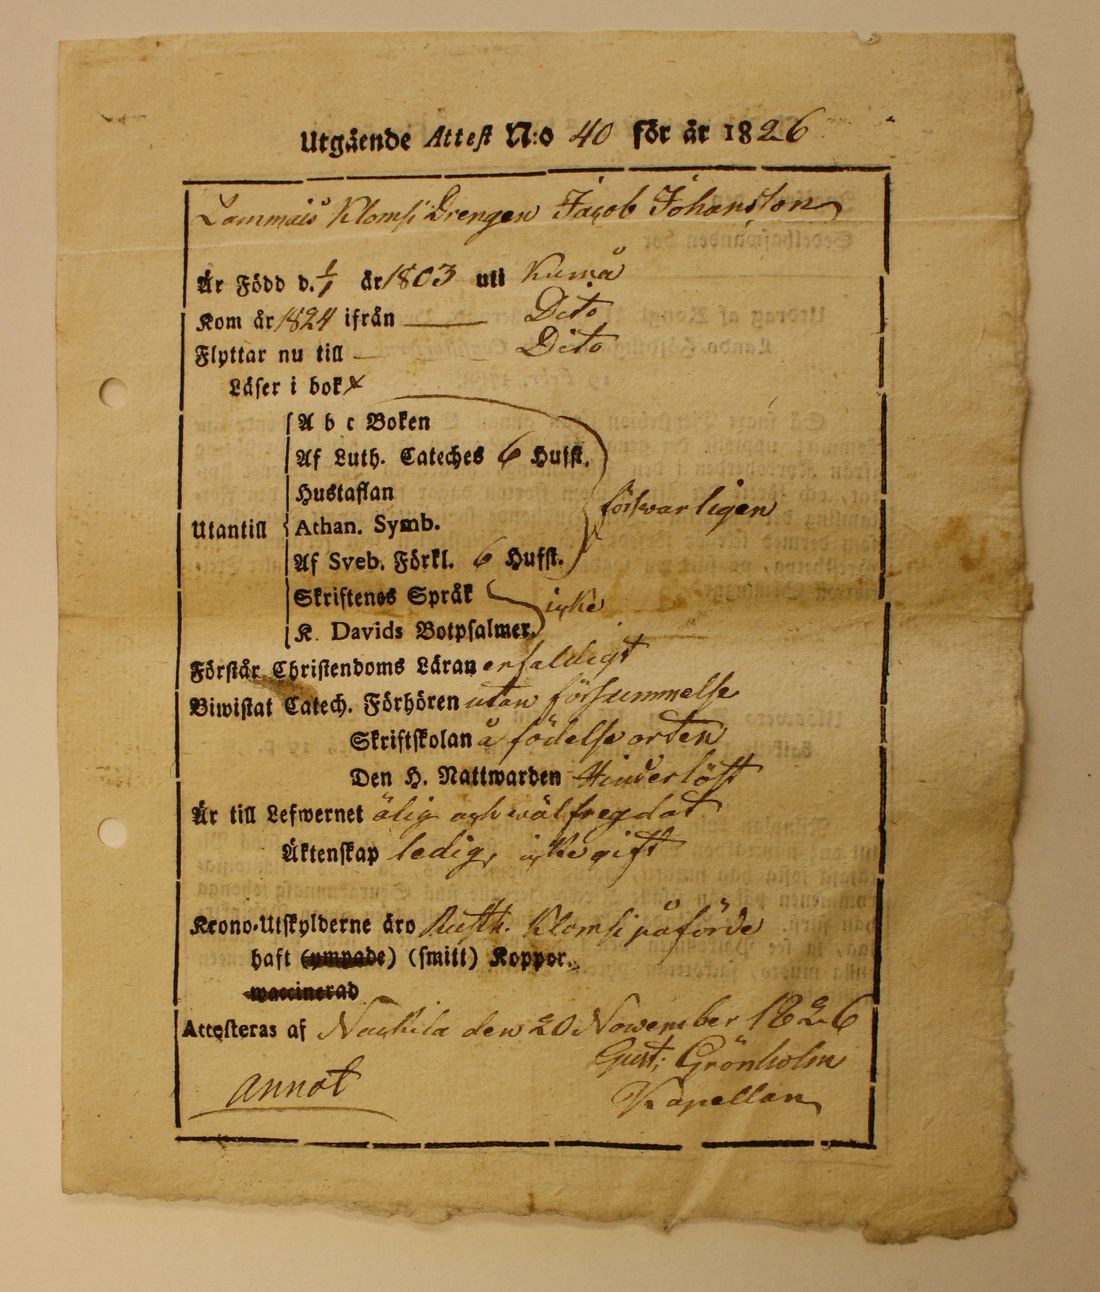 Utgående Attest N:o 40 för år 1826
Lammais Klomsi Drengen Jacob Johansson
Är Född d. 1/1 år 1803 uti Kumå
Kom år 1824 ifrån — Dito
Flyttar nu till — Dito
Läser i bok x
A b c Boken
Af Luth. Cateches 6 Hufst.
Hustaflan
Utantill Athan. Symb. försvarligen
Af Sveb. Förkl. 6 Hufst.
Skriftenes Språk icke
K. Davids Botpsalmer.
Förstår Christendoms Läran enfaldigt
Biwistat Catech. Förhören utan försummelse
Skriftskolan å födelse orten
Den H. Nattwarden Hinderlöst
Är till Lefwernet ärlig och wälfregdat
Äktenskap ledig, icke gift
Krono-Utskylderne äro Rusth. Klomsi påförde
haft (ympade) (smitt) Koppor.
waccinerad
Attesteras af Nackila den 20 November 1826
Gust: Grönholm
annot Kapellan